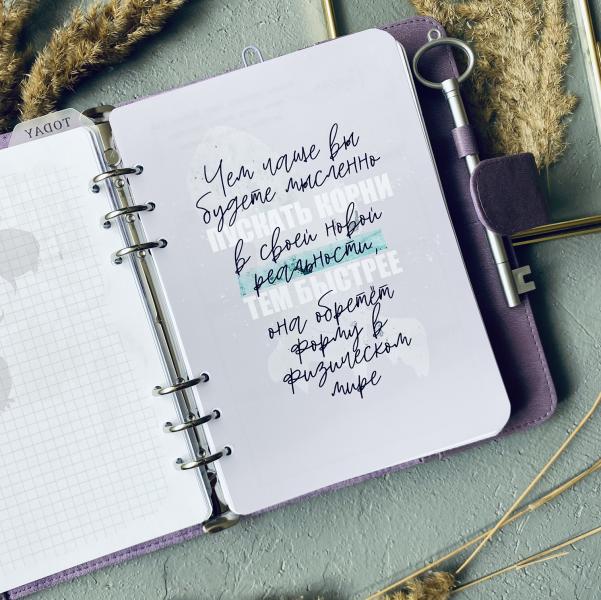 TODAY
Чем чаще вы
будете мысленно
ПУСКАТЬ КОРНИ
в своей новой
реальности,
ТЕМ БЫСТРЕЕ
она обретёт
форму в
физическом
мире